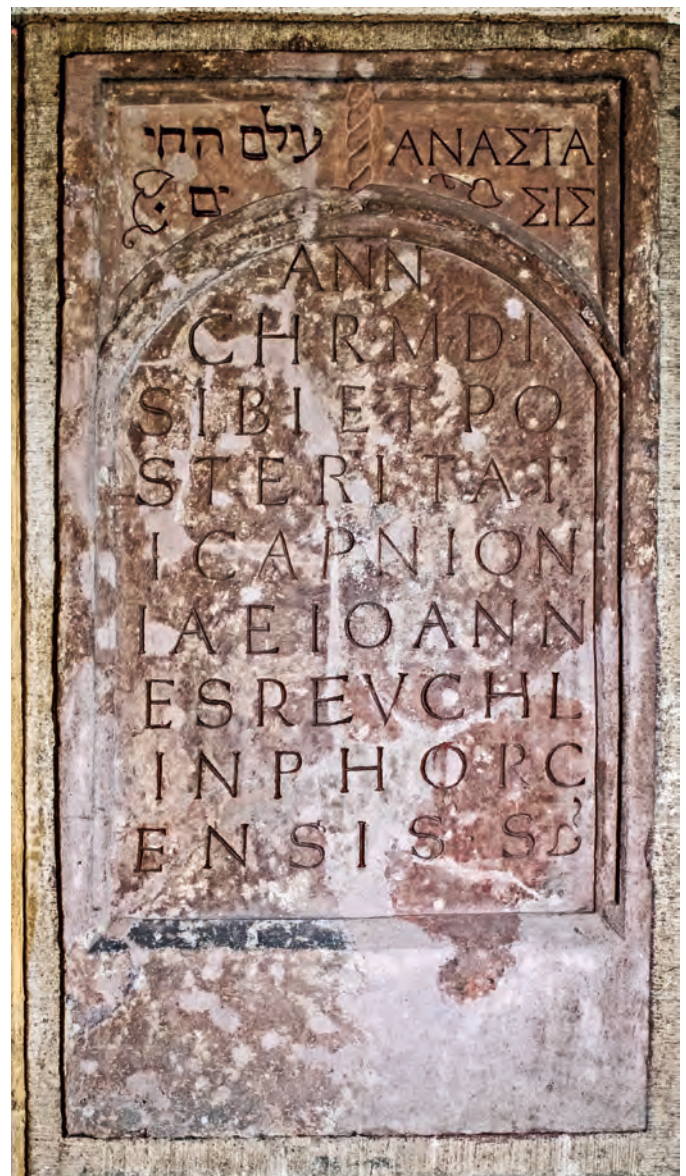 עלם החי
ים
ΑΝΑΣΤΑ
ΣΙΣ
ANN
CHR M·DI·
SIBI ET PO
STERITAT
I CAPNION
IAE IOANN
ES REVCHL
IN PHORC
ENSIS S